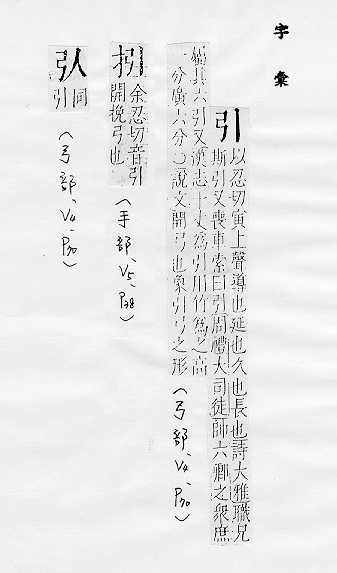 字彙
引 以忍切寅上聲導也延也久也長也詩大雅職兄
斯引又喪車索曰引周禮大司徒師六卿之衆庶
屬其六引又漢志十丈爲引用竹爲之高
分廣六分○說文開弓也象引弓之形(弓部、V4、P30)
抈 余忍切音引
開挽弓也(手部、V5、P38)
𢎢 同
引(弓部、V4、P30)